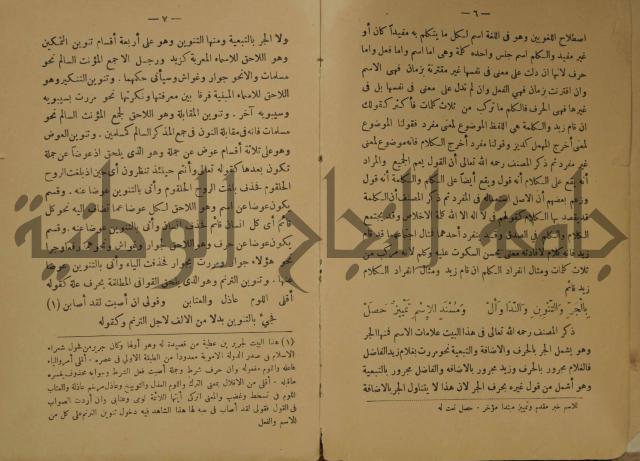 — ٦ —
اصطلاح اللغويين وهو فى اللغة اسم لكل ما يتكلم به مفيدا كان أو
غير مفيد والكلم اسم جنس واحده كلمة وهى اما اسم واما فعل واما
حرف لانها ان دلت على معنى فى نفسها غير مقترنة بزمان فهى الاسم
وان اقترنت بزمان فهى الفعل وان لم تدل على معنى فى نفسها بل فى
غيرها فهى الحرف فالكلم ما تركب من ثلاث كلمات فأكثر كقولك
ان قام زيد والكلمة هى اللفظ الموضوع لمعنى مفرد فقولنا الموضوع
لمعنى أخرج المهمل كديز وقولنا مفرد أخرج الكلام فانه موضوع لمعنى
غير مفرد ثم ذكر المصنف رحمه الله تعالى أن القول يعم الجميع والمراد
أنه يقع على الكلام أنه قول ويقع أيضا على الكلم والكلمة أنه قول
وزعم بعضهم أن الاصل استعماله فى المفرد ثم ذكر المصنف أن الكلمة
قد يقصد بها الكلام كقولهم فى لا اله الا الله كلمة الاخلاص وقد يجتمع
الكلام والكلم فى الصدق وقد ينفرد أحدهما فمثال اجتماعهما قد قام
زيد فانه كلام لافادته معنى يحسن السكوت عليه وكلم لانه مركب من
ثلاث كلمات ومثال انفراد الكلم ان قام زيد ومثال انفراد الكلام
زيد قائم
بِالْجَرِّ وَالتَّنْوِينِ وَالنِّدَا وَأَلْ وَمُسْنَدٍ لِلاِسْمِ تَمْيِيزٌ حَصَلْ
ذكر المصنف رحمه الله تعالى فى هذا البيت علامات الاسم فمنها الجر
وهو يشمل الجر بالحرف والاضافة والتبعية نحو مررت بغلام زيد الفاضل
فالغلام مجرور بالحرف وزيد مجرور بالاضافه والفاضل مجرور بالتبعية
وهو أشمل من قول غيره بحرف الجر لان هذا لا يتناول الجر بالاضافة
للاسم خبر مقدم وتمييز مبتدا مؤخر - حصل نعت له
— ٧ —
ولا الجر بالتبعية ومنها التنوين وهو على أربعة أقسام تنوين التمكين
وهو اللاحق للاسماء المعربة كزيد ورجل الا جمع المؤنث السالم نحو
مسلمات والا نحو جوار وغواش وسيأتى حكمهما . وتنوين التنكير وهو
اللاحق للاسماء المبنية فرقا بين معرفتها ونكرتها نحو مررت بسيبويه
وسيبويه آخر . وتنوين المقابلة وهو اللاحق لجمع المؤنث السالم نحو
مسلمات فانه فى مقابلة النون فى جمع المذكر السالم كمسلمين . وتنوين العوض
وهو على ثلاثة أقسام عوض عن جملة وهو الذى يلحق اذ عوضا عن جملة
تكون بعدها كقوله تعالى وأنتم حينئذ تنظرون أى حين اذ بلغت الروح
الحلقوم فحذف بلغت الروح الحلقوم وأتى بالتنوين عوضا عنه . وقسم
يكون عوضا عن اسم وهو اللاحق لكل عوضا عما تضاف اليه نحو كل
قائم أى كل انسان قائم فحذف انسان وأتى بالتنوين عوضا عنه . وقسم
يكون عوضا عن حرف وهو اللاحق لجوار وغواش ونحوهما رفعا وجرا
نحو هؤلاء جوار ومررت بجوار فحذفت الياء وأتى بالتنوين عوضا
عنها . وتنوين الترنم وهو الذى يلحق القوافى المطلقة بحرف علة كقوله
أقلى اللوم عاذل والعتابن وقولى ان أصبت لقد أصابن (١)
فجىء بالتنوين بدلا من الالف لاجل الترنم وكقوله
(١) هذا البيت لجرير بن عطية من قصيدة له
جامعة النجاح الوطنية